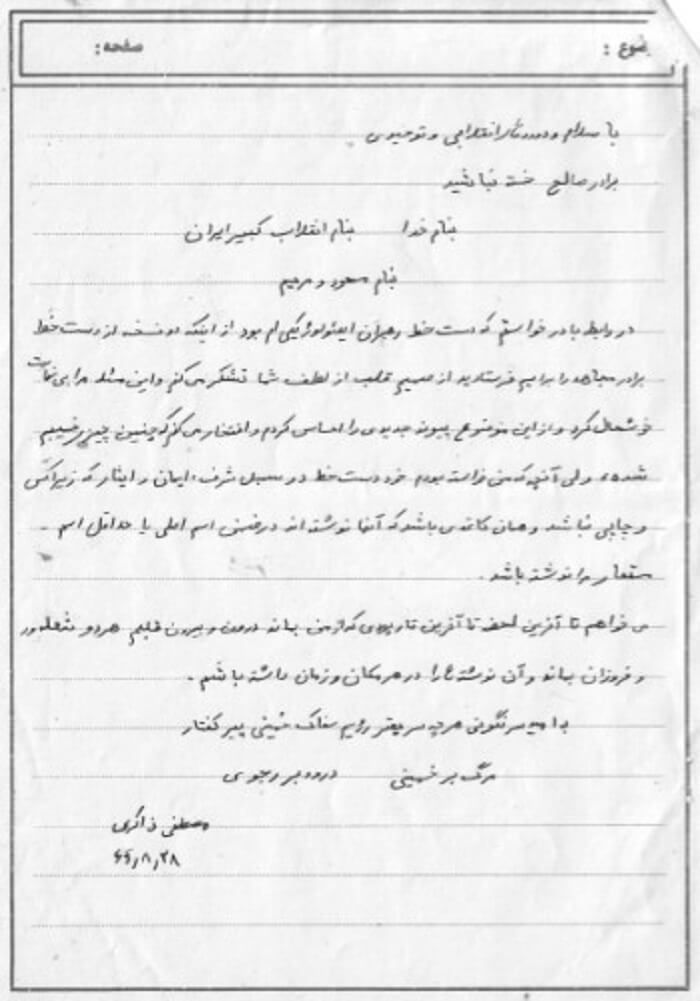 موضوع :
صفحه:
با سلام و درودهای انقلابی و توحیدی
برادر صالح خسته نباشید
بنام خدا بنام انقلاب کبیر ایران
بنام مسعود و مریم
در رابطه با درخواستم که دست خط رهبران ایدئولوژیکی ام بود از اینکه دو نسخه از دست خط
برادر مجاهد را برایم فرستادید از صمیم قلب از لطف شما تشکر می کنم و این مسئله مرا بی نهایت
خوشحال کرد و از این موضوع پیوند جدیدی را احساس کردم و افتخار می کنم که چنین چیزی نصیبم
شده، ولی آنچه که من خواسته بودم خود دست خط دو سمبل شرف، ایمان و ایثار که زیراکس
و چاپی نباشد و همان کاغذی باشد که آنها نوشته اند در ضمن اسم اصلی یا حداقل اسم
مستعار مرا نوشته باشد.
می خواهم تا آخرین لحظه تا آخرین تار و پودی که از من بماند درون و بیرون قلبم هر دو شعله ور
و فروزان بماند و آن نوشته را در هر مکان و زمان داشته باشم.
به امید سرنگونی هر چه سریعتر رژیم سفاک خمینی پیر کفتار
مرگ بر خمینی درود بر رجوی
مصطفی ذاکری
۶۶٫۸٫۲۸